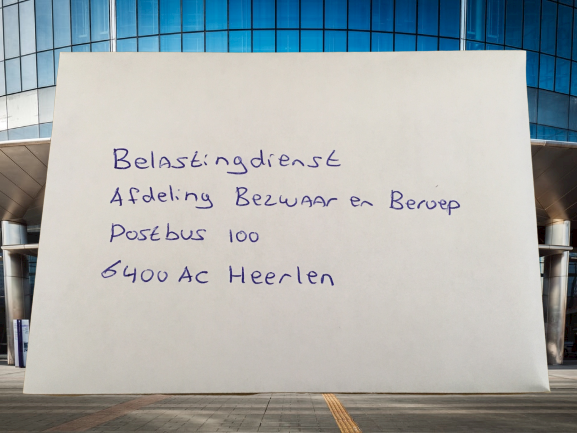 Belastingdienst
Afdeling Bezwaar en Beroep
Postbus 100
6400 AC Heerlen